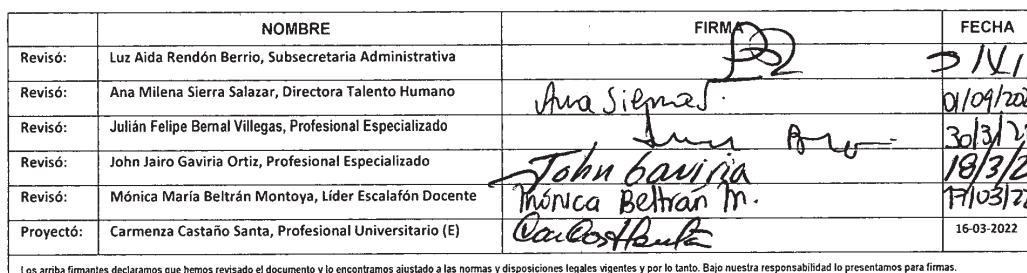 NOMBRE FIRMA FECHA
Revisó: Luz Aida Rendón Berrio, Subsecretaria Administrativa
Revisó: Ana Milena Sierra Salazar, Directora Talento Humano Ana Sierra S. 01/04/202
Revisó: Julián Felipe Bernal Villegas, Profesional Especializado 30/3/2
Revisó: John Jairo Gaviria Ortiz, Profesional Especializado John Gaviria 18/3/2
Revisó: Mónica María Beltrán Montoya, Líder Escalafón Docente Mónica Beltrán M. 17/03/22
Proyectó: Carmenza Castaño Santa, Profesional Universitario (E) 16-03-2022
Los arriba firmantes declaramos que hemos revisado el documento y lo encontramos ajustado a las normas y disposiciones legales vigentes y por lo tanto. Bajo nuestra responsabilidad lo presentamos para firmas.